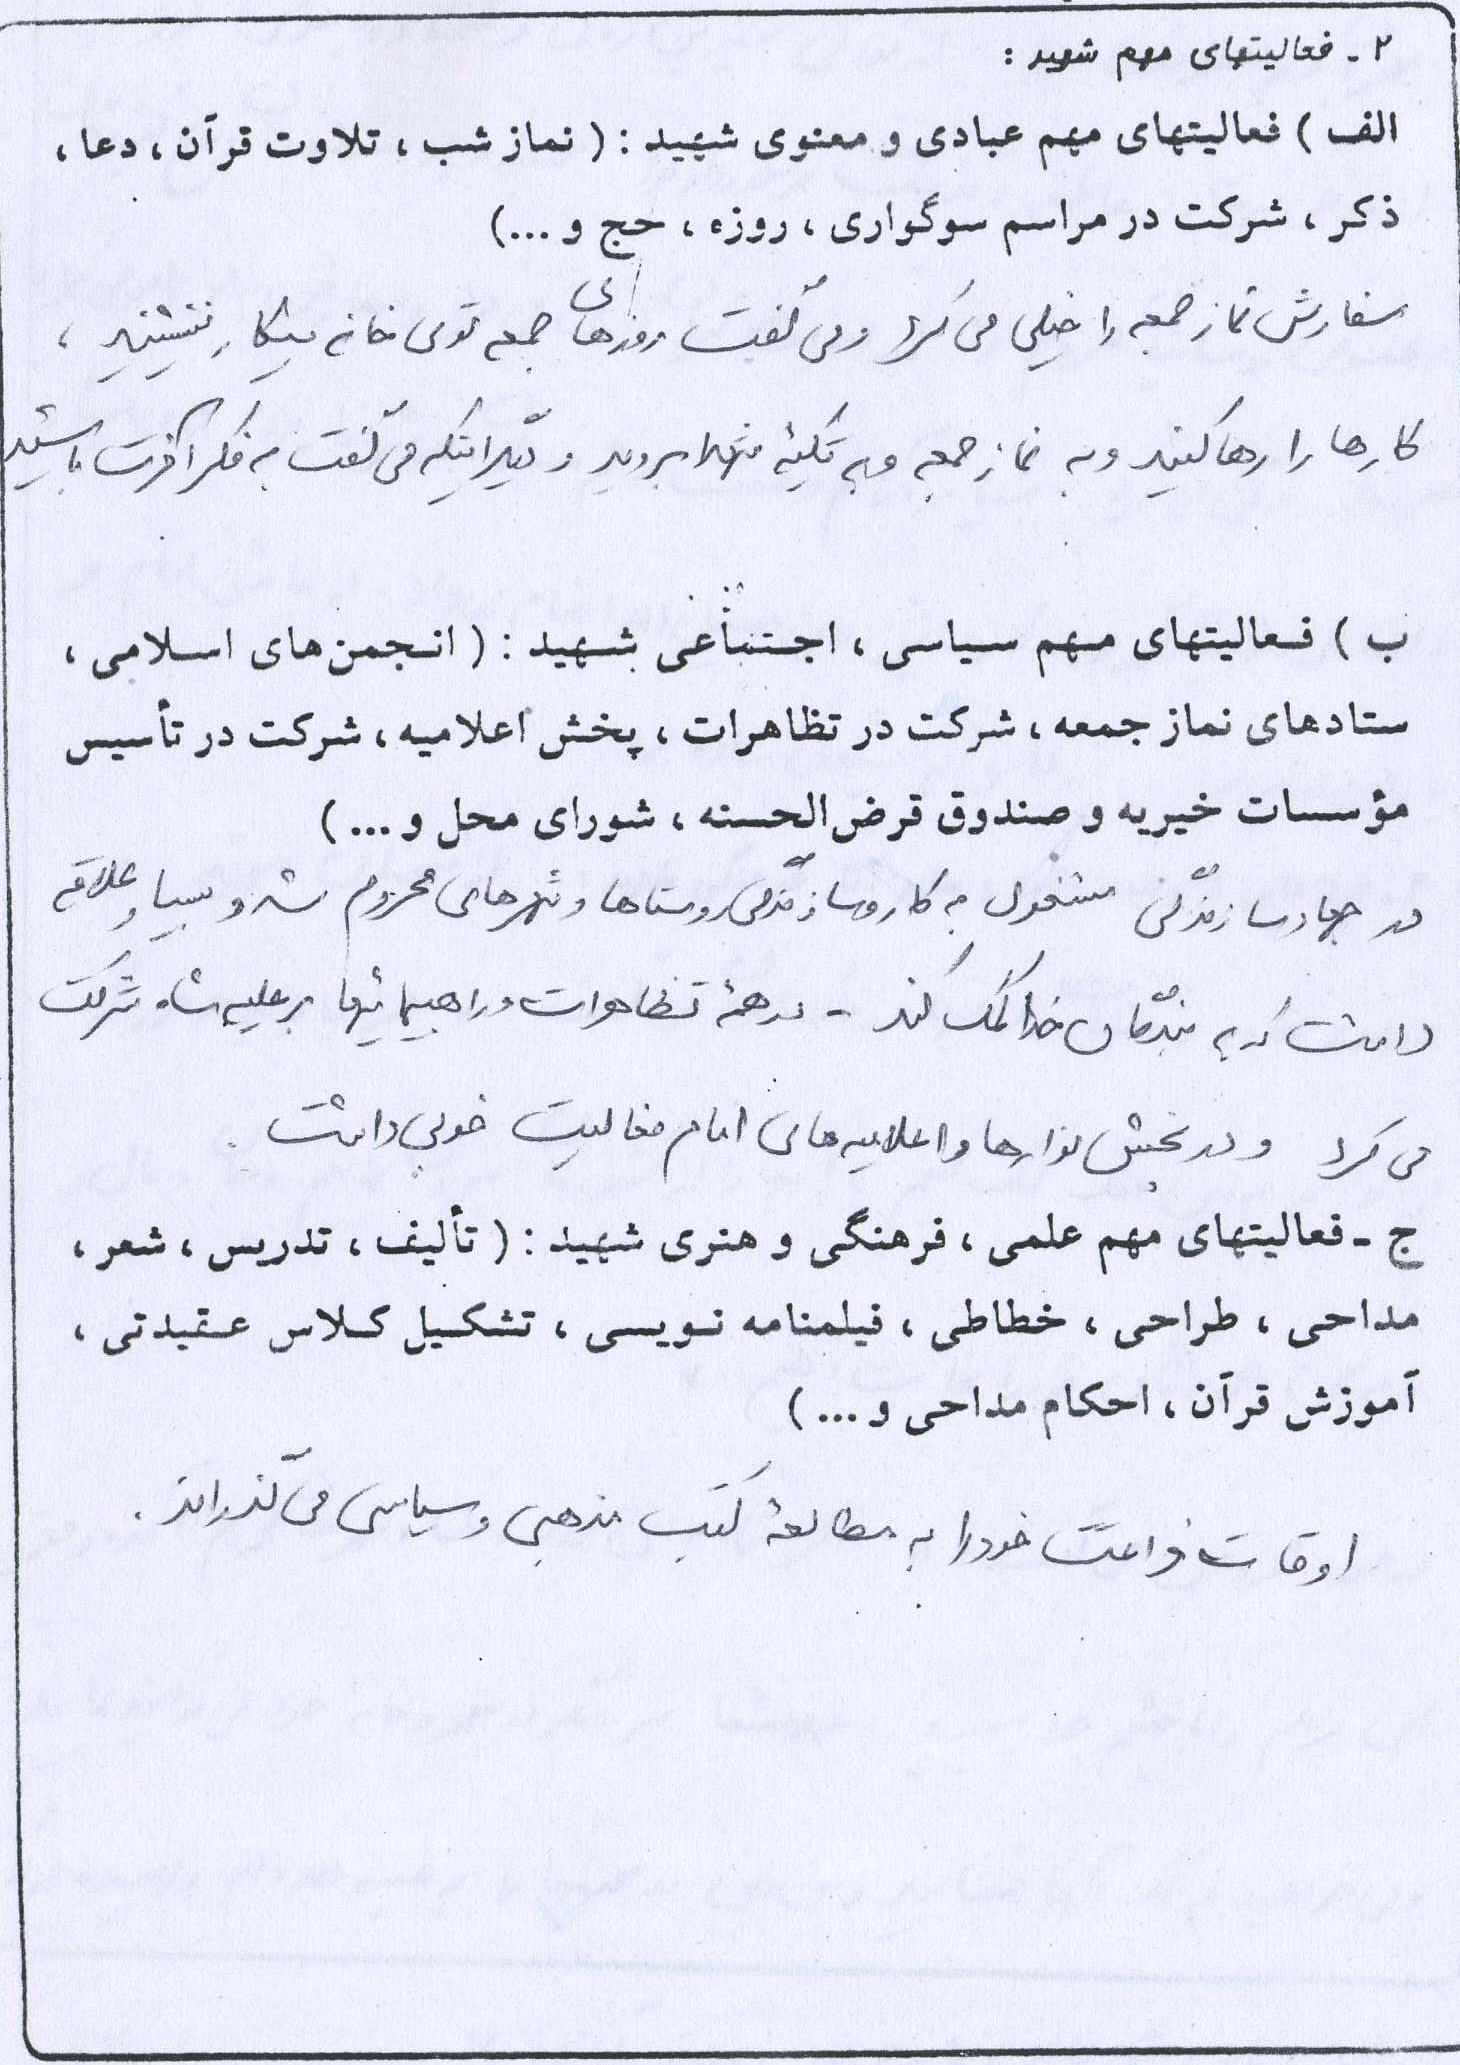 ۲ - فعالیتهای مهم شهید :
الف ) فعالیتهای مهم عبادی و معنوی شهید : ( نماز شب ، تلاوت قرآن ، دعا ،
ذکر ، شرکت در مراسم سوگواری ، روزه ، حج و ...)
سفارش نماز جمعه را خیلی می کرد و می گفت روزهای جمعه توی خانه بیکار ننشینید ،
کارها را رها کنید و به نماز جمعه و به تکیهٔ شهدا بروید و دیگر اینکه می گفت به فکر آخرت باشید
ب ) فعالیتهای مهم سیاسی ، اجتماعی شهید : ( انجمن های اسلامی ،
ستادهای نماز جمعه ، شرکت در تظاهرات ، پخش اعلامیه ، شرکت در تأسیس
مؤسسات خیریه و صندوق قرض الحسنه ، شورای محل و ... )
در جهاد سازندگی مشغول به کار و سازندگی روستاها و شهرهای محروم شد و بسیار علاقه
داشت که به بندگان خدا کمک کند - در همهٔ تظاهرات و راهپیمائیها بر علیه شاه شرکت
می کرد و در پخش نوارها و اعلامیه های امام فعالیت خوبی داشت .
ج - فعالیتهای مهم علمی ، فرهنگی و هنری شهید : ( تألیف ، تدریس ، شعر ،
مداحی ، طراحی ، خطاطی ، فیلمنامه نویسی ، تشکیل کلاس عقیدتی ،
آموزش قرآن ، احکام مداحی و ... )
اوقات فراغت خود را به مطالعهٔ کتب مذهبی و سیاسی می گذراند .